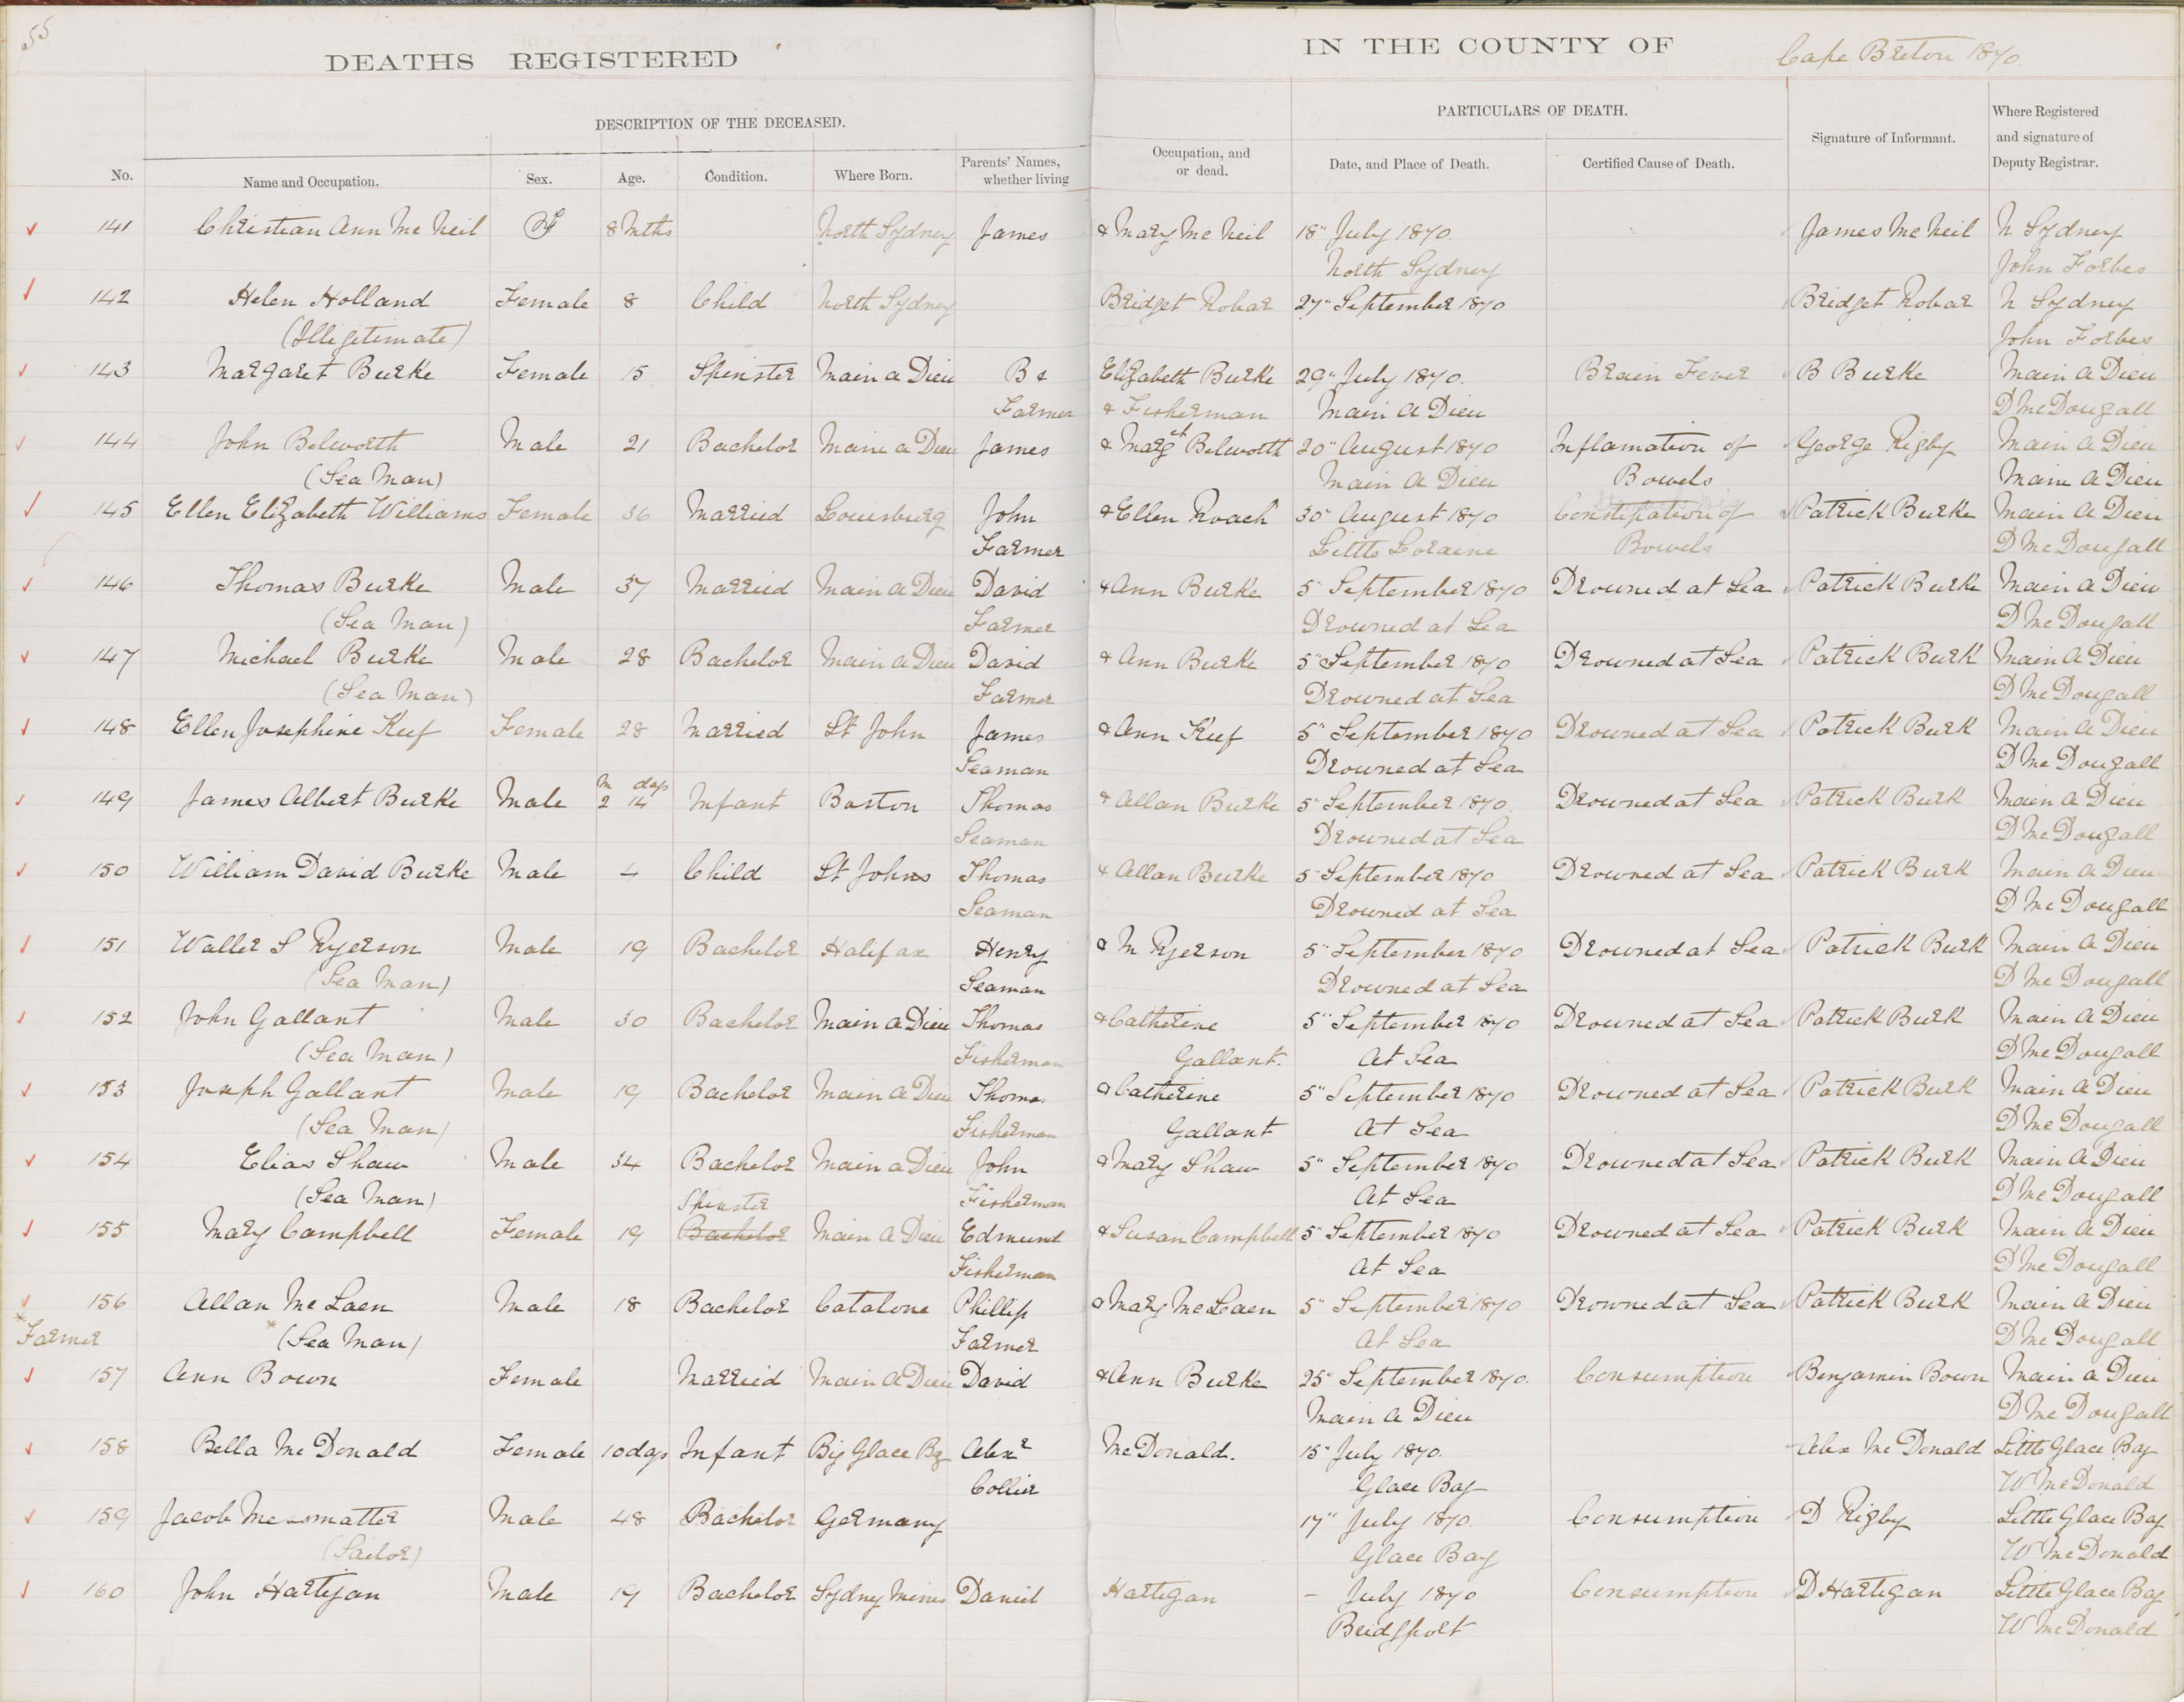 55
DEATHS REGISTERED IN THE COUNTY OF Cape Breton 1870.
DESCRIPTION OF THE DECEASED. PARTICULARS OF DEATH.
No. Name and Occupation. Sex. Age. Condition. Where Born. Parents' Names, whether living Occupation, and or dead. Date, and Place of Death. Certified Cause of Death. Signature of Informant. Where Registered and signature of Deputy Registrar.
141 Christian Ann Mc Neil 8 Mths North Sydney James & Mary Mc Neil 18" July 1870. James Mc Neil N Sydney
North Sydney John Forbes
142 Helen Holland Female 8 Child North Sydney Bridget Nobar 27" September 1870 Bridget Nobar N Sydney
(Illigetimate) John Forbes
143 Margaret Burke Female 15 Spinster Main a Dieu B & Elizabeth Burke 29" July 1870. Brain Fever B Burke Main A Dieu
Farmer & Fisherman Main A Dieu D McDougall
144 John Belworth Male 21 Bachelor Main a Dieu James & Marget Belworth 20" August 1870 Inflamation of George Rigby Main A Dieu
(Sea Man) Main A Dieu Bowels Main A Dieu
145 Ellen Elizabeth Williams Female 36 Married Louisburg John & Ellen Roach 30" August 1870 Constipation of Patrick Burke Main A Dieu
Farmer Little Loraine Bowels D Mc Dougall
146 Thomas Burke Male 37 Married Main A Dieu David & Ann Burke 5" September 1870 Drowned at Sea Patrick Burke Main A Dieu
(Sea Man) Farmer Drowned at Sea D Mc Dougall
147 Michael Burke Male 28 Bachelor Main A Dieu David & Ann Burke 5" September 1870 Drowned at Sea Patrick Burk Main A Dieu
(Sea Man) Farmer Drowned at Sea D Mc Dougall
148 Ellen Josephine Keef Female 28 Married St John James & Ann Keef 5" September 1870 Drowned at Sea Patrick Burk Main A Dieu
Seaman Drowned at Sea D Mc Dougall
149 James Albert Burke Male M 2 days 14 Infant Boston Thomas & Allan Burke 5" September 1870. Drowned at Sea Patrick Burk Main A Dieu
Seaman Drowned at Sea D Mc Dougall
150 William David Burke Male 4 Child St Johns Thomas & Allan Burke 5" September 1870 Drowned at Sea Patrick Burk Main A Dieu
Seaman Drowned at Sea D Mc Dougall
151 Waller S Ryerson Male 19 Bachelor Halifax Henry & M Ryerson 5" September 1870 Drowned at Sea Patrick Burk Main A Dieu
(Sea Man) Seaman Drowned at Sea D Mc Dougall
152 John Gallant Male 30 Bachelor Main a Dieu Thomas & Catherine 5" September 1870 Drowned at Sea Patrick Burk Main A Dieu
(Sea Man) Fisherman Gallant. At Sea D Mc Dougall
153 Joseph Gallant Male 19 Bachelor Main A Dieu Thomas & Catherine 5" September 1870 Drowned at Sea Patrick Burk Main A Dieu
(Sea Man) Fisherman Gallant At Sea D Mc Dougall
154 Elias Shaw Male 34 Bachelor Main a Dieu John & Mary Shaw 5" September 1870 Drowned at Sea Patrick Burk Main A Dieu
(Sea Man) Fisherman At Sea D Mc Dougall
155 Mary Campbell Female 19 Spinster Bachelor Main A Dieu Edmund & Susan Campbell 5" September 1870 Drowned at Sea Patrick Burk Main A Dieu
Fisherman At Sea D Mc Dougall
156 Allan Mc Laen Male 18 Bachelor Catalone Phillip & Mary Mc Laen 5" September 1870 Drowned at Sea Patrick Burk Main A Dieu
* Farmer * (Sea Man) Farmer At Sea D Mc Dougall
157 Ann Bown Female Married Main A Dieu David & Ann Burke 25" September 1870. Consumption Benjamin Bown Main a Dieu
Main A Dieu D Mc Dougall
158 Bella Mc Donald Female 10 days Infant Big Glace Bay Alexr McDonald. 15" July 1870. Alex Mc Donald Little Glace Bay
Collier Glace Bay W McDonald
159 Jacob Messmatter Male 48 Bachelor Germany 17" July 1870. Consumption D Rigby Little Glace Bay
(Sailor) Glace Bay W McDonald
160 John Hartigan Male 19 Bachelor Sydney Mines Daniel Hartigan – July 1870 Consumption D Hartigan Little Glace Bay
Bridgport W McDonald